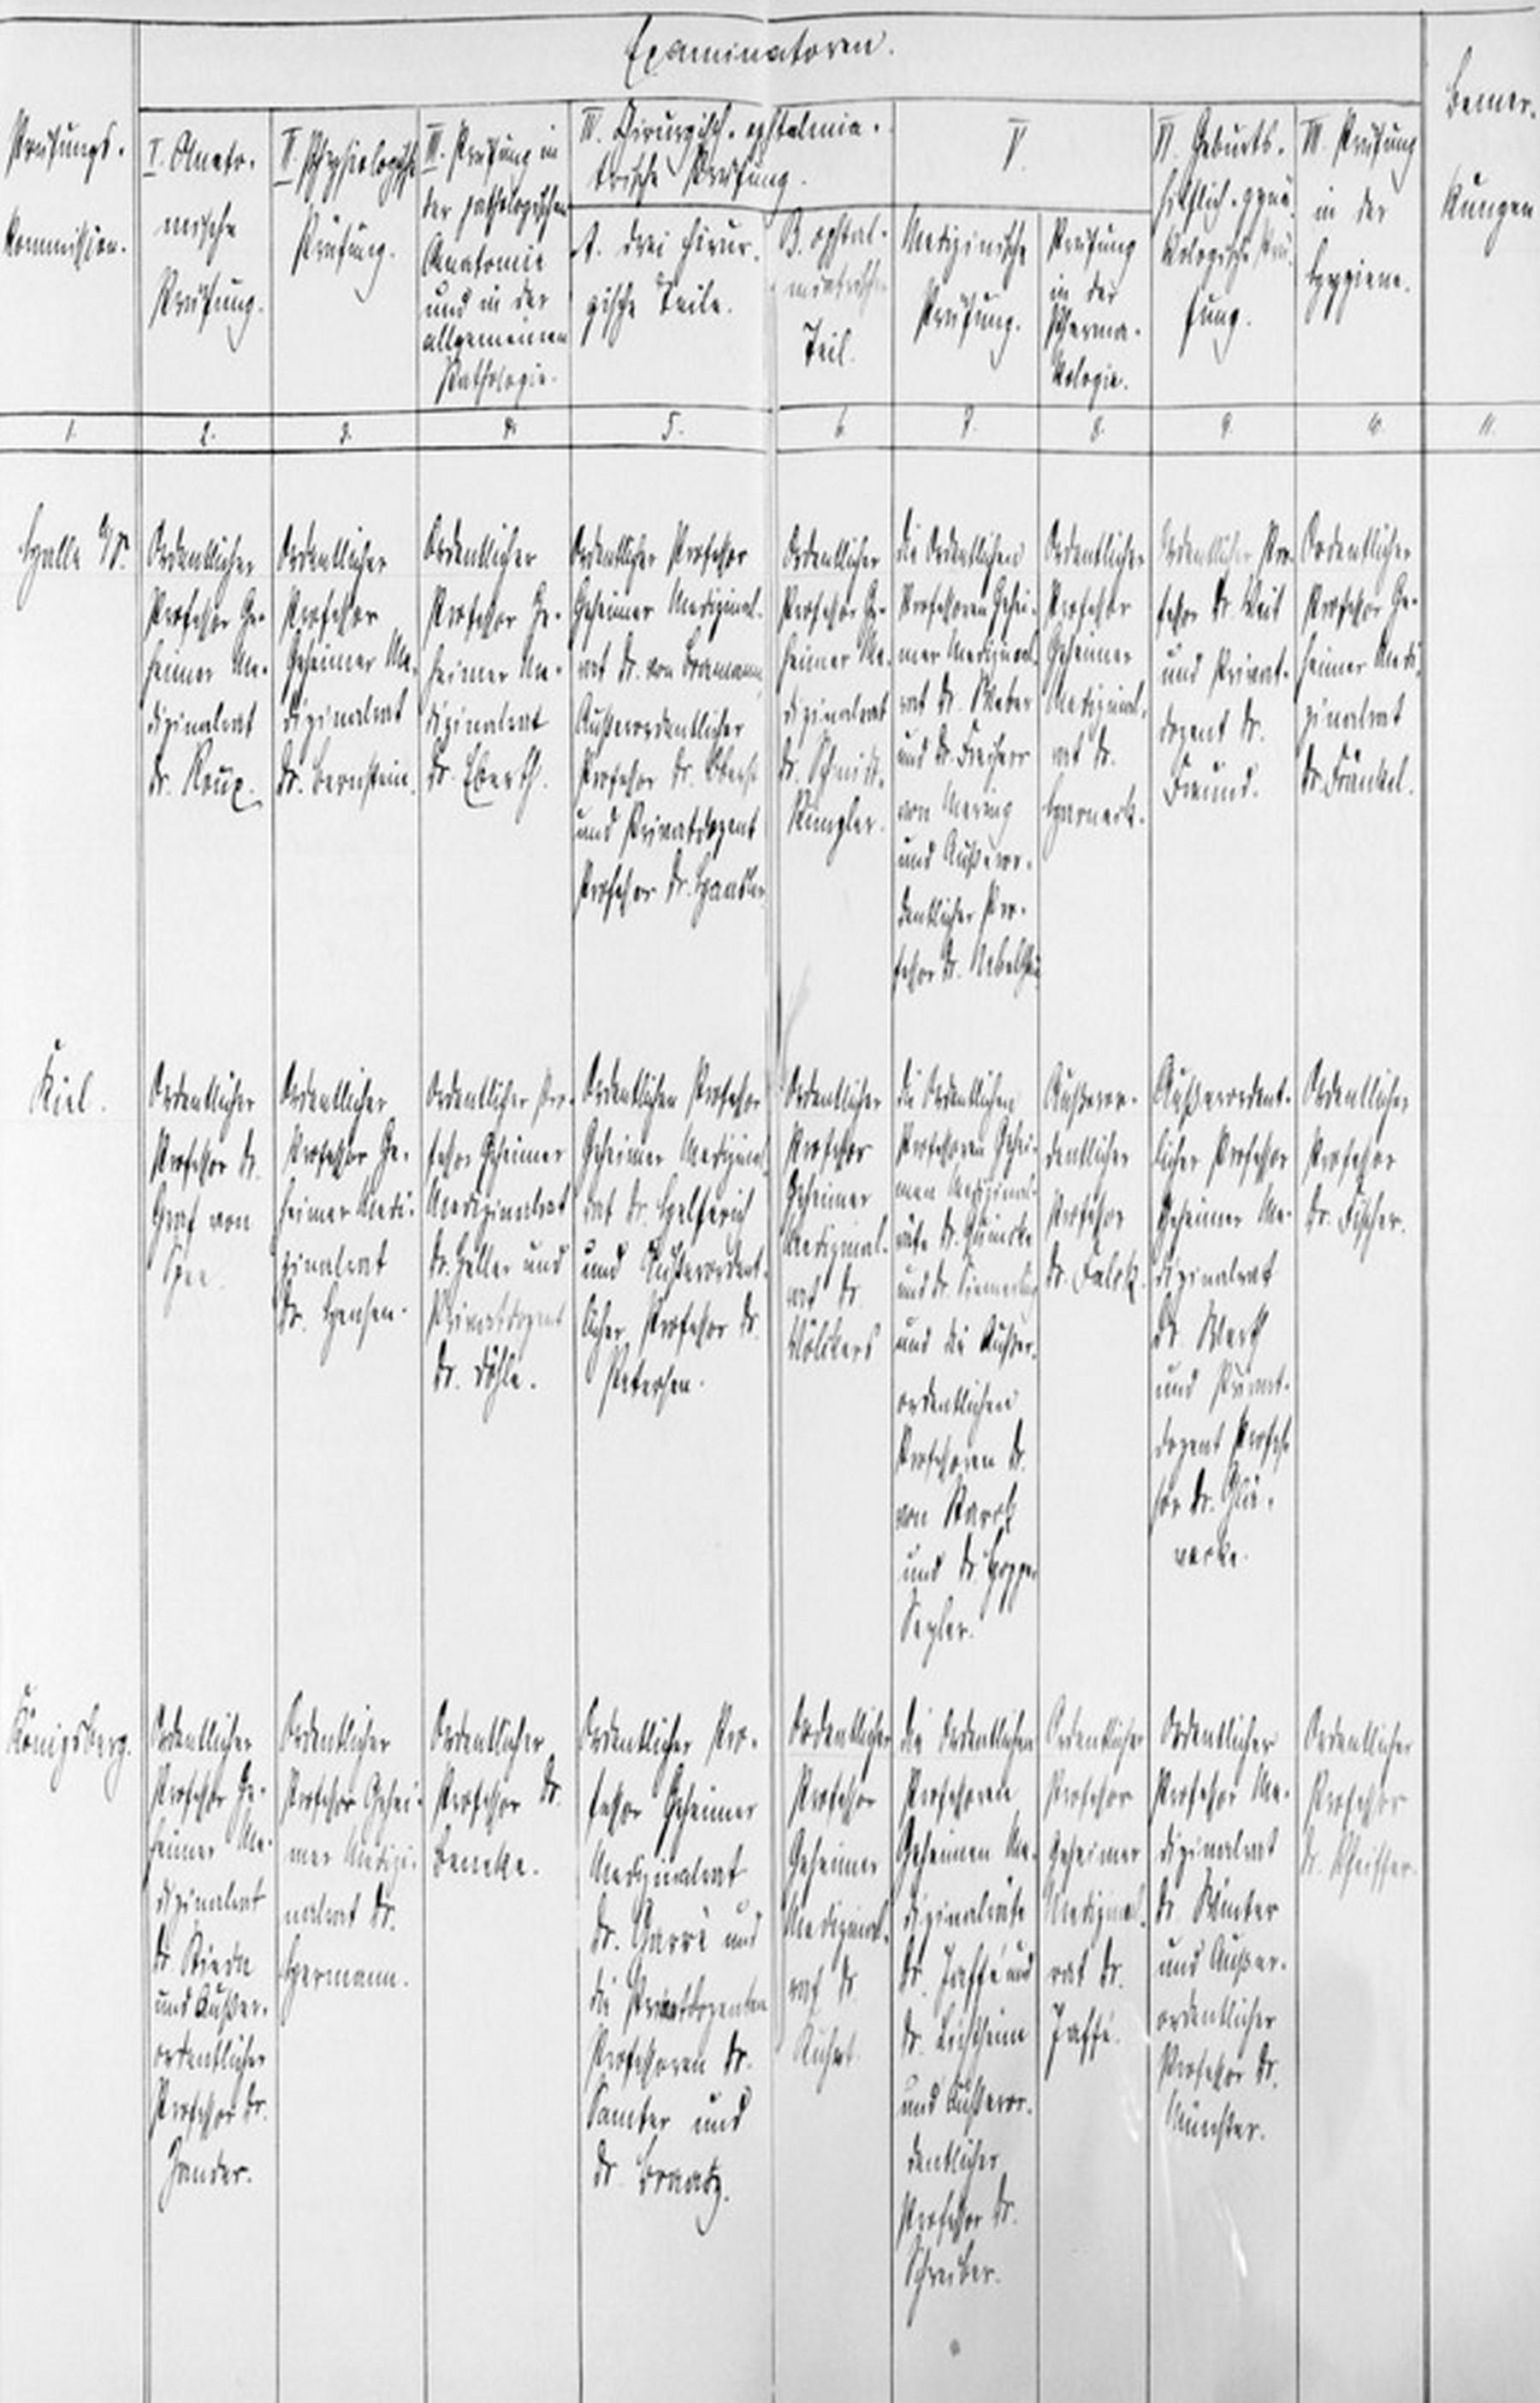 Examinatoren.
Prüfungs-
Kommission.
I. Anato-
mische
Prüfung.
II. Physiologische
Prüfung.
III. Prüfung in
der pathologischen
Anatomie
und in der
allgemeinen
Pathologie.
IV. Chirurgisch-ophtalmia-
trische Prüfung.
A. drei chirur-
gische Teile.
B. ophtal-
miatrischer
Teil.
V.
Medizinische
Prüfung.
Prüfung
in der
Pharma-
kologie.
VI. Geburts-
hilflich-gynä-
kologische Prü-
fung.
VII. Prüfung
in der
Hygiene.
Bemer-
kungen
1. 2. 3. 4. 5. 6. 7. 8. 9. 10. 11.
Halle a/S.
Ordentlicher
Professor Ge-
heimer Me-
dizinalrat
Dr. Roux.
Ordentlicher
Professor
Geheimer Me-
dizinalrat
Dr. Bernstein.
Ordentlicher
Professor Ge-
heimer Me-
dizinalrat
Dr. Eberth.
Ordentlicher Professor
Geheimer Medizinal-
rat Dr. von Bramann,
Außerordentlicher
Professor Dr. Oberst
und Privatdozent
Professor Dr. Haasler
Ordentlicher
Professor Ge-
heimer Me-
dizinalrat
Dr. Schmidt-
Rimpler.
die Ordentlichen
Professoren Gehei-
mer Medizinal-
rat Dr. Weber
und Dr. Freiherr
von Mering
und Außeror-
dentlicher Pro-
fessor Dr. Nebelthau
Ordentlicher
Professor
Geheimer
Medizinal-
rat Dr.
Harnack.
Ordentlicher Pro-
fessor Dr. Veit
und Privat-
dozent Dr.
Freund.
Ordentlicher
Professor Ge-
heimer Medi-
zinalrat
Dr. Fränkel.
Kiel.
Ordentlicher
Professor Dr.
Graf von
Spee.
Ordentlicher
Professor Ge-
heimer Medi-
zinalrat
Dr. Hensen.
Ordentlicher Pro-
fessor Geheimer
Medizinalrat
Dr. Heller und
Privatdozent
Dr. Döhle.
Ordentlichen Professor
Geheimer Medizinal-
rat Dr. Helferich
und Außerordent-
licher Professor Dr.
Petersen.
Ordentlicher
Professor
Geheimer
Medizinal-
rat Dr.
Völckers
die Ordentlichen
Professoren Gehei-
men Medizinal-
räte Dr. Quincke
und Dr. Siemerling
und die Außer-
ordentlichen
Professoren Dr.
von Starck
und Dr. Hoppe-
Seyler.
Außeror-
dentlicher
Professor
Dr. Falck.
Außerordent-
licher Professor
Geheimer Me-
dizinalrat
Dr. Werth
und Privat-
dozent Profes-
sor Dr. Glä-
vecke.
Ordentlicher
Professor
Dr. Fischer.
Königsberg.
Ordentlicher
Professor Ge-
heimer Me-
dizinalrat
Dr. Stieda
und Außer-
ordentlicher
Professor Dr.
Zander.
Ordentlicher
Professor Gehei-
mer Medizi-
nalrat Dr.
Hermann.
Ordentlicher
Professor Dr.
Beneke.
Ordentlicher Pro-
fessor Geheimer
Medizinalrat
Dr. Garrè und
die Privatdozenten
Professoren Dr.
Samter und
Dr. Braatz.
Ordentlicher
Professor
Geheimer
Medizinal-
rat Dr.
Kuhnt.
die Ordentlichen
Professoren
Geheimen Me-
dizinalräte
Dr. Jaffé und
Dr. Lichtheim
und Außeror-
dentlicher
Professor Dr.
Schreiber.
Ordentlicher
Professor
Geheimer
Medizinal-
rat Dr.
Jaffé.
Ordentlicher
Professor Me-
dizinalrat
Dr. Winter
und Außer-
ordentlicher
Professor Dr.
Münster.
Ordentlicher
Professor
Dr. Pfeiffer.